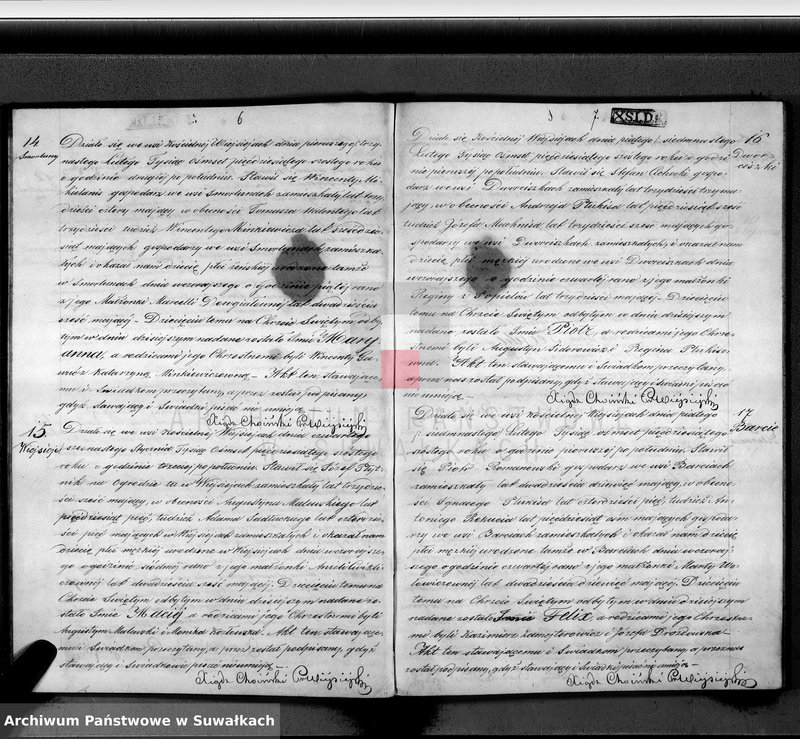 6
14
Smolany
Działo się we wsi Kościelnej Wiejsiejach dnia pierwszego trzy
nastego Lutego Tysiąc Osmset pięćdziesiątego szostego roku
o godzinie drugiej po południu. Stawił się Wincenty
gospodarz we wsi Smolanach zamieszkały lat trzy
dzieści cztery mający w obecności Tomasza lat
trzydzieści Wincentego Minkiewicza lat
siąt mających gospodarzy we wsi zamieszka
łych i okazał nam dziecię płci żeńskiej urodzone tamże
w dnia wczorajszego o godzinie piątej rano
z jego Małżonki Marcelli lat dwadzieścia
sześć mającej. Dziecięciu temu na Chrzcie Świętym odby
tym w dniu dzisiejszym nadane zostało Imie Mary
anna, a rodzicami jego Chrzestnemi byli Wincenty
i Katarzyna Minkiewiczowna. Akt ten stawające
mu i Świadkom przeczytany, a przez nas podpisany
gdyż stawający i Świadki pisać nie umieją
Xiądz Chociński P. Wiejsiejski
15
Wiejsieje
Działo się we wsi Kościelnej Wiejsiejach dnia czwartego
szesnastego Stycznia Tysiąc Osmset pięćdziesiątego szostego
roku o godzinie trzeciej po południu. Stawił się Józef
na Ogrodzie tu w Wiejsiejach zamieszkały lat trzydzie
ści sześć mający, w obecności Augustyna Malewskiego lat
pięćdziesiąt pięć, tudzież Adama lat czterdzie
ści pięć mających w Wiejsiejach zamieszkałych i okazał nam
dziecię płci męzkiej urodzone w Wiejsiejach dnia wczorajsze
go o godzinie siodmej rano z jego małżonki
lat dwadzieścia sześć mającej. Dziecięciu temu na
Chrzcie Świętym odbytym w dniu dzisiejszym nadane zo
stało Imie Maciej a rodzicami jego Chrzestnemi byli
Augustyn Malewski i Monika Akt ten stawające
mu i Świadkom przeczytany, a przez nas został podpisany, gdyż
stawający i Świadkowie pisać nie umieją
Xiądz Chociński P. Wiejsiejski
7
XSLD
16
Dwor
ciszki
Działo się Kościelnej Wiejsiejach dnia piątego siedmnastego
Lutego Tysiąc Osmset pięćdziesiątego szostego roku o godzi
nie pierwszej po południu. Stawił się Stefan gospo
darz we wsi Dworciszkach zamieszkały lat trzydzieści trzy ma
jący, w obecności Andrzeja lat pięćdziesiąt sześć
tudzież Józefa lat trzydzieści sześć mających go
spodarzy we wsi Dworciszkach zamieszkałych, i okazał nam
dziecię płci męzkiej urodzone we wsi Dworciszkach dnia
wczorajszego o godzinie czwartej rano z jego małżonki
Reginy z lat trzydzieści mającej. Dziecięciu
temu na Chrzcie Świętym odbytym w dniu dzisiejszym
nadane zostało Imie Piotr, a rodzicami jego Chrze
stnemi byli Augustyn Sidorewicz i Regina
Akt ten stawającemu i Świadkom przeczytany,
a przez nas został podpisany, gdyż stawający i Świadki pisać
nie umieją
Xiądz Chociński P. Wiejsiejski
17
Barcie
Działo się we wsi Kościelnej Wiejsiejach dnia piątego
siedmnastego Lutego Tysiąc osmset pięćdziesiątego
szostego roku o godzinie pierwszej po południu. Stawił
się Piotr Romanowski gospodarz we wsi Barciach
zamieszkały lat dwadzieścia dziewięć mający, w obecno
ści Ignacego lat czterdzieści pięć, tudzież An
toniego lat pięćdziesiąt osm mających gospoda
rzy we wsi Barciach zamieszkałych i okazał nam dziecię
płci męzkiej urodzone tamże w Barciach dnia wczoraj
szego o godzinie czwartej rano z jego małżonki Marty
lat dwadzieścia dziewięć mającej. Dziecięciu
temu na Chrzcie Świętym odbytym w dniu dzisiejszym
nadane zostało Imie Felix, a rodzicami jego Chrzest
nemi byli Kazimierz i Józefa Drozdowska.
Akt ten stawającemu i Świadkom przeczytany, a przez nas
został podpisany, gdyż stawający i Świadki pisać nie umieją
Xiądz Chociński P. Wiejsiejski
Archiwum Państwowe w Suwałkach